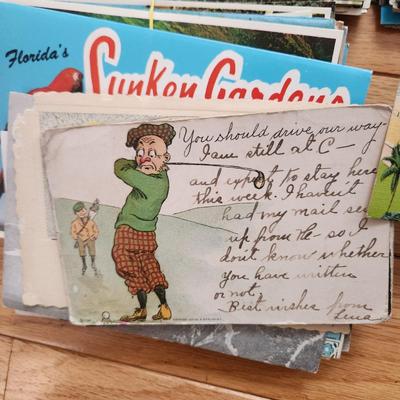 Florida's
Sunken Gardens
You should drive our way
I am still at C—
and expect to stay here
this week. I haven't
had my mail sent
up from H— so I
don't know whether
you have written
or not.
Best wishes from
Lena